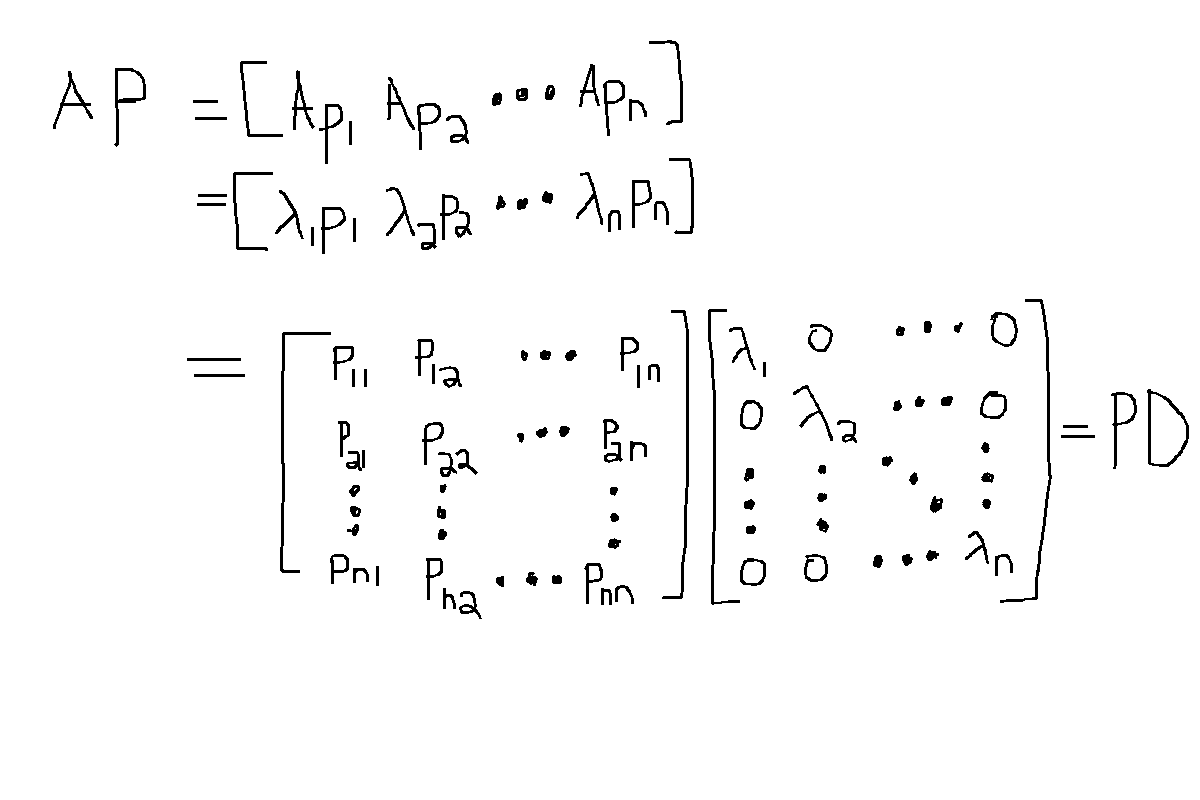 AP = [Ap₁ Ap₂ ⋯ Apₙ]
= [λ₁p₁ λ₂p₂ ⋯ λₙpₙ]
= [p₁₁ p₁₂ ⋯ p₁ₙ; p₂₁ p₂₂ ⋯ p₂ₙ; ⋮ ⋮ ⋮; pₙ₁ pₙ₂ ⋯ pₙₙ] [λ₁ 0 ⋯ 0; 0 λ₂ ⋯ 0; ⋮ ⋮ ⋱ ⋮; 0 0 ⋯ λₙ] = PD